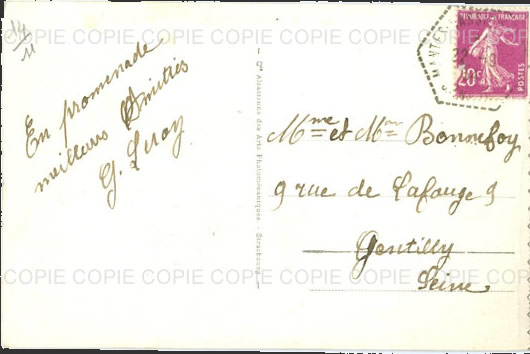 14
11
En promenade
meilleurs Amitiés
G. Leray
Cie Alsacienne des Arts Photomécaniques - Strasbourg
RÉPUBLIQUE FRANÇAISE
20c
POSTES
MANTES
Mme et Mr Bonnefoy
9 rue de Lafouge 9
Gentilly
Seine
COPIE COPIE COPIE COPIE COPIE COPIE COPIE
COPIE COPIE COPIE COPIE COPIE COPIE COPIE
COPIE COPIE COPIE COPIE COPIE COPIE COPIE